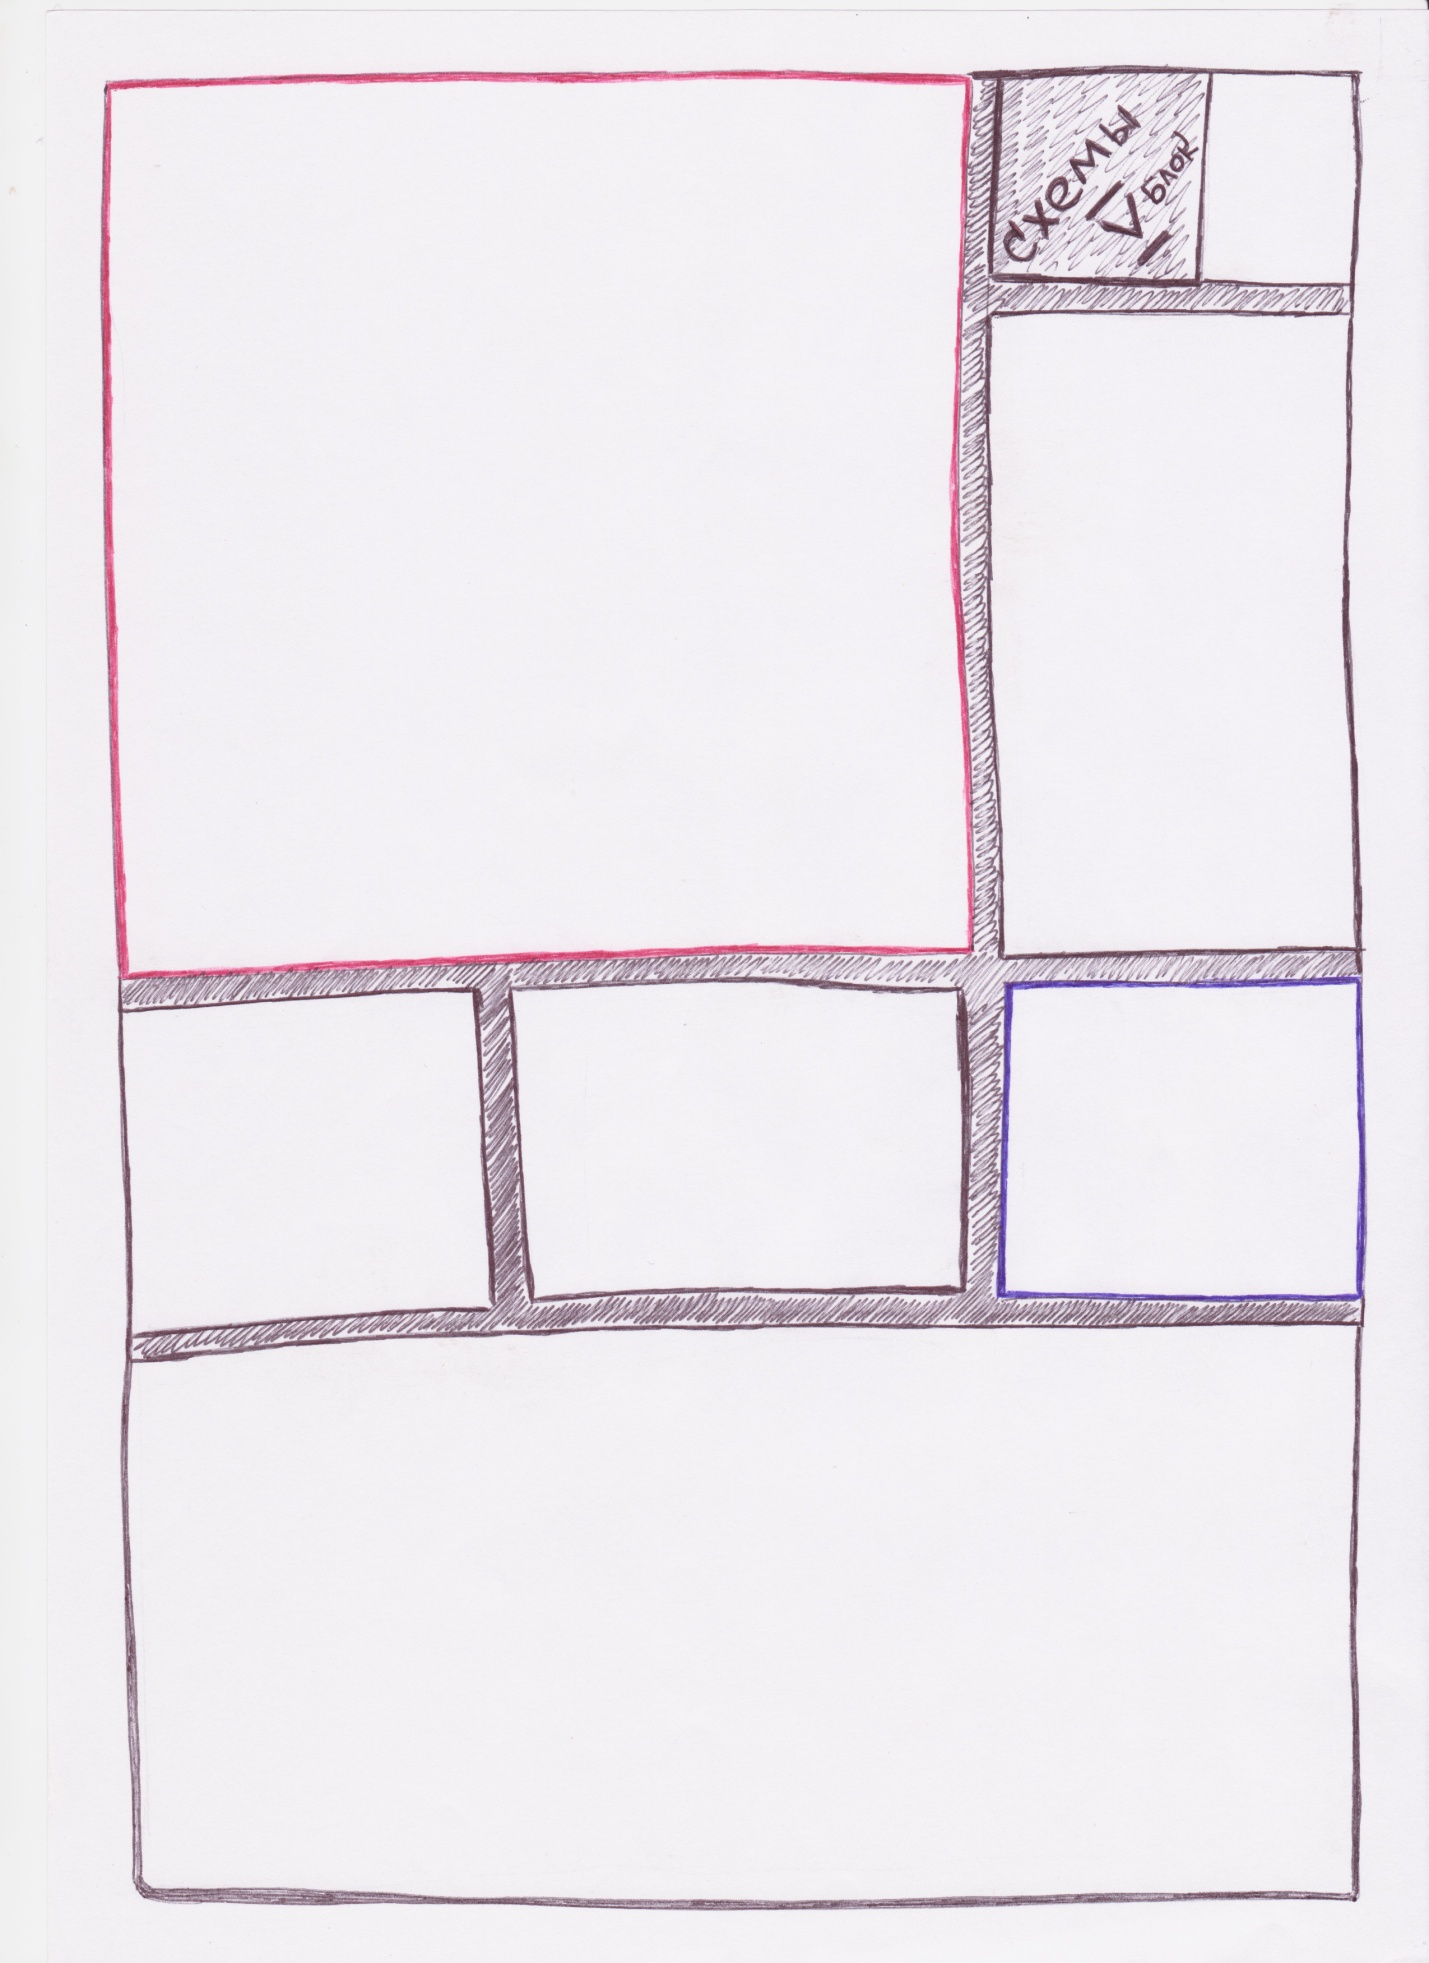 схемы
V блок